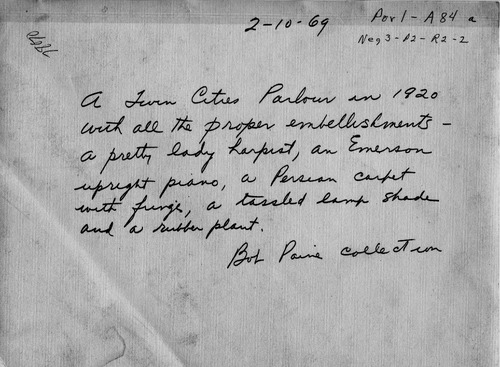 2-10-69
Por 1 - A84 a
Neg 3 - P2 - R2 - 2
A Twin Cities Parlour in 1920
with all the proper embellishments -
a pretty lady harpist, an Emerson
upright piano, a Persian carpet
with fringe, a tassled lamp shade
and a rubber plant.
Bob Paine collection